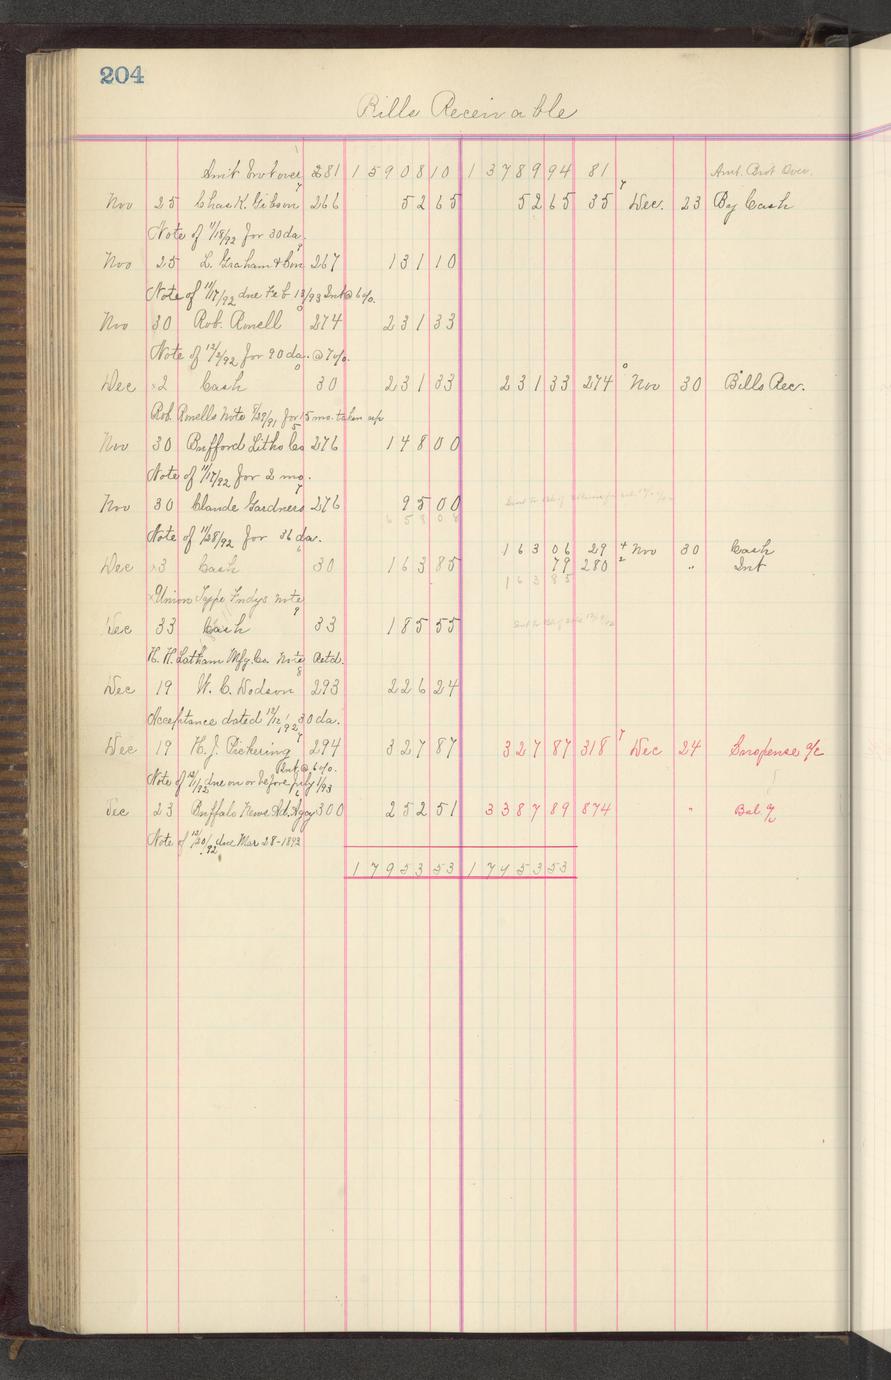 204
Bills Receivable
Amt Brot over 281 15908 10 13789 94 81 Amt. Brot Over.
Nov 25 Chas K. Gibson 7 266 52 65 52 65 35 7 Dec. 23 By Cash
Note of 11/18/92 for 30 da.
Nov 25 L. Graham & Son 9 267 131 10
Note of 11/17/92 due Feb 18/93 Int @ 6%.
Nov 30 Rob. Ronell 0 274 231 33
Note of 12/2/92 for 90 da. @ 7%.
Dec 2 Cash 0 30 231 33 231 33 274 0 Nov 30 Bills Rec.
Rob. Ronells Note for 15 mo. taken up
Nov 30 Bufford Litho Co 5 276 148 00
Note of 11/17/92 for 2 mo.
Nov 30 Claude Gardners 7 276 95 00
658 08
Note of 11/28/92 for 36 da.
163 06 29 4 Nov 30 Cash
Dec 3 Cash 6 30 163 85 79 280 2 " Int
163 85
x Union Type Fndys note
Dec 33 Cash 9 33 185 55
H. H. Latham Mfg. Co. Note Retd.
Dec 19 W. C. Dodson 8 293 226 24
Acceptance dated 12/12/92 30 da.
Dec 19 H. J. Pickering 7 294 327 87 327 87 318 7 Dec 24 Suspense a/c
Int. @ 6%.
Note of 12/1/92 due on or before July 1/93
Dec 23 Buffalo News Ad. Agcy 6 300 252 51 3387 89 874 " Bal. a/c
Note of 12/20/92 due Mar 28-1893
17953 53 17453 53